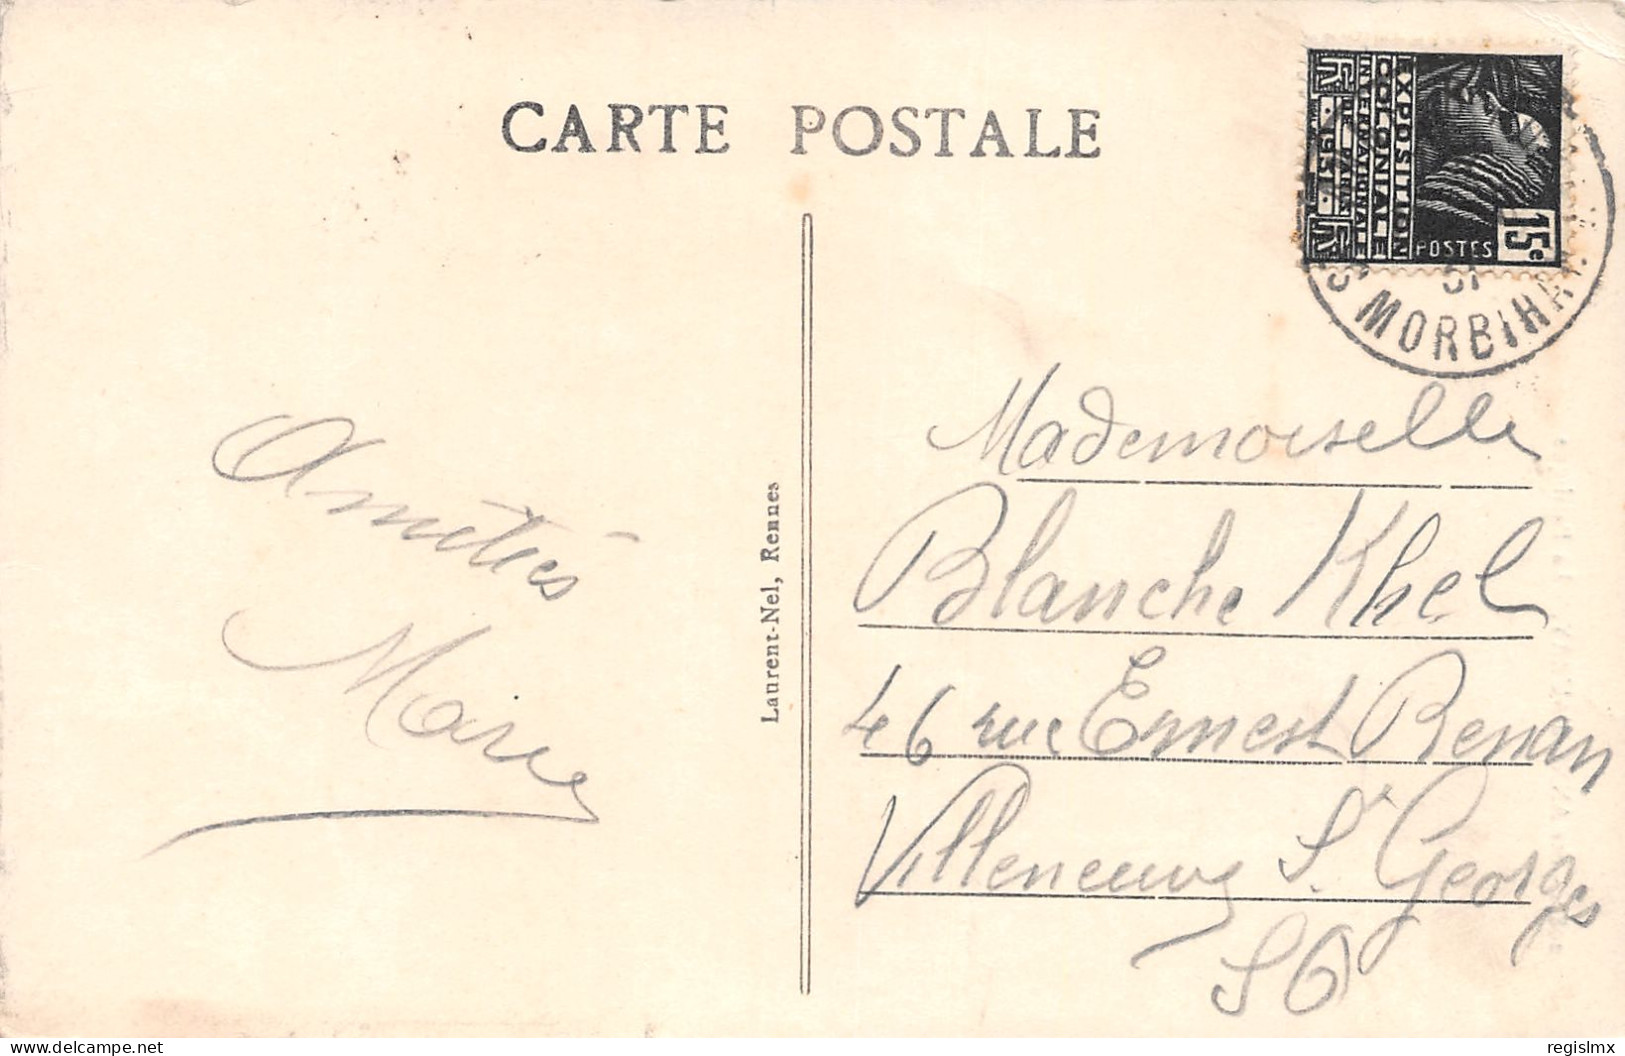 CARTE POSTALE
EXPOSITION
COLONIALE
INTERNATIONALE
DE PARIS
1931
POSTES
15c
31
MORBIHAN
Amitiés
Marie
Laurent-Nel, Rennes
Mademoiselle
Blanche Khel
46 rue Ernest Renan
Villeneuve St Georges
SO
delcampe.net
regislmx